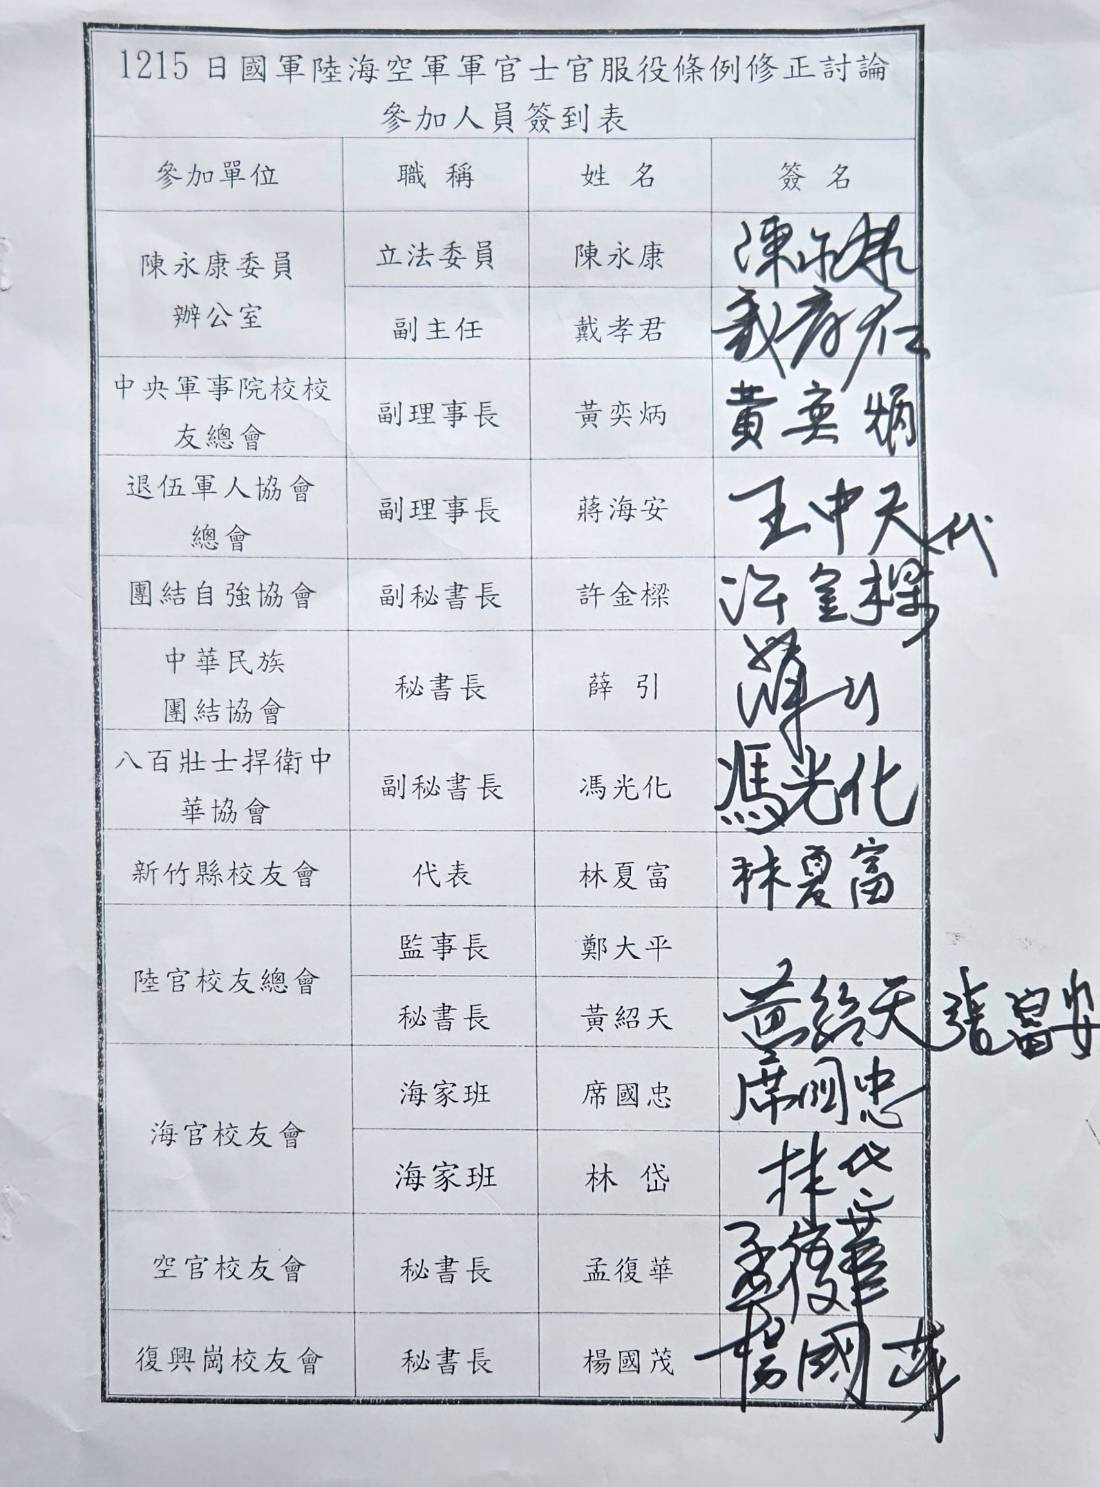 1215日國軍陸海空軍軍官士官服役條例修正討論
參加人員簽到表
參加單位 職稱 姓名 簽名
陳永康委員
辦公室
立法委員 陳永康 陳永康
副主任 戴孝君 戴孝君
中央軍事院校校
友總會
副理事長 黃奕炳 黃奕炳
退伍軍人協會
總會
副理事長 蔣海安 王中天代
團結自強協會 副秘書長 許金樑 許金樑
中華民族
團結協會
秘書長 薛引 薛引
八百壯士捍衛中
華協會
副秘書長 馮光化 馮光化
新竹縣校友會 代表 林夏富 林夏富
陸官校友總會
監事長 鄭大平
秘書長 黃紹天 黃紹天 張富安
海官校友會
海家班 席國忠 席國忠
海家班 林岱 林岱
空官校友會 秘書長 孟復華 孟復華
復興崗校友會 秘書長 楊國茂 楊國茂